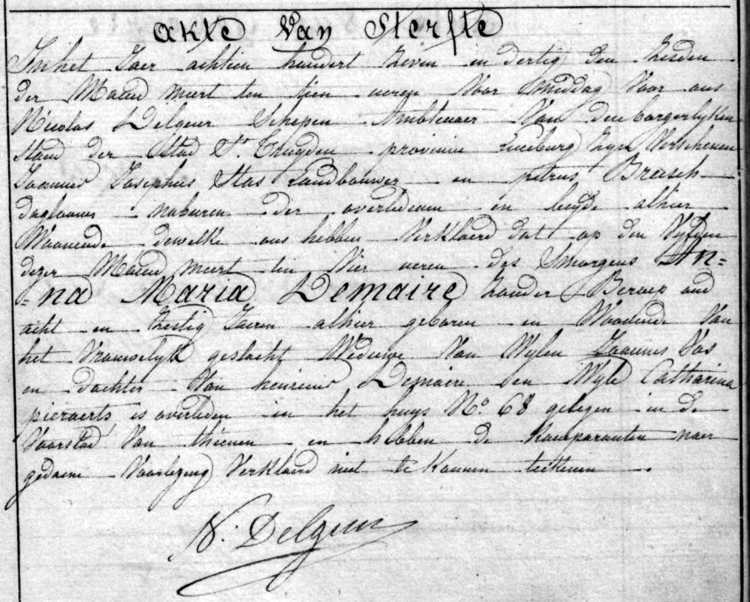 akte van Sterfte
In het Jaer achtien hundert zeven en dertig den zesden
der Maend meert ten tien ueren voor middag voor ons
Nicolas Delgeur Schepen Ambtenaer van den borgerlyken
stand der Stad St Truyden provincie Limburg zyn verschenen
Joannes Josephus Stas Landbouwer en petrus
daglooner naburen der overledenen en beyde alhier
Woonende dewelke ons hebben verklaerd dat op den vyfden
dezer Maend meert ten vier ueren des Smorgens An=
=na Maria Demaire zonder Beroep oud
acht en zestig Jaeren alhier geboren en Woonende van
het vrouwelyk geslacht Weduwe van Wylen Joannes Vos
en dochter van henricus Demaire en Wyle Catharina
pieraerts is overleden in het huys No. 68 gelegen in de
voorstad van thienen en hebben de komparanten naer
gedaene voorlezing verklaerd niet te konnen teekenen.
N. Delgeur